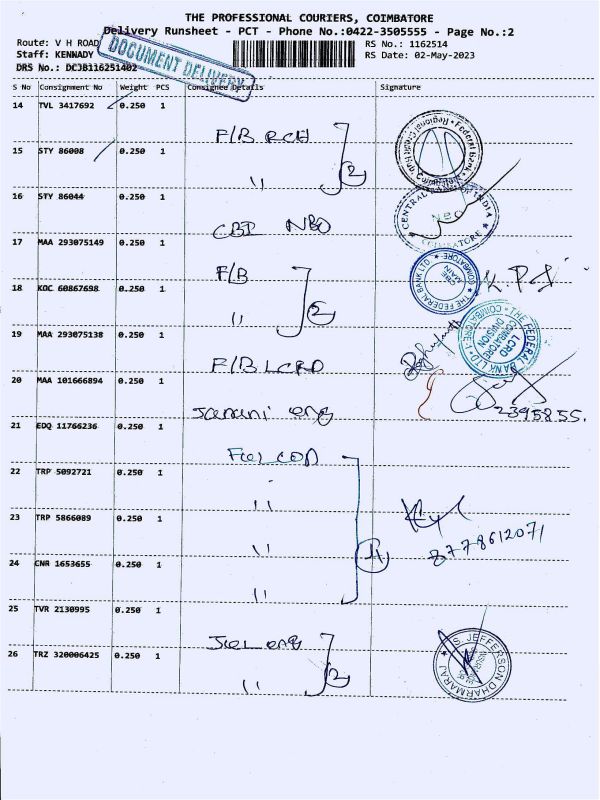 THE PROFESSIONAL COURIERS, COIMBATORE
Delivery Runsheet - PCT - Phone No.:0422-3505555 - Page No.:2
Route: V H ROAD
RS No.: 1162514
Staff: KENNADY
RS Date: 02-May-2023
DRS No.: DCJB116251402
DOCUMENT DELIVERY
S No Consignment No Weight PCS Consignee Details Signature
14 TVL 3417692 0.250 1 F/B RCH
15 STY 86008 0.250 1 " 2
16 STY 86044 0.250 1 CBI NBO
CENTRAL BANK OF INDIA
COIMBATORE
17 MAA 293075149 0.250 1 F/B
THE FEDERAL BANK LTD. COIMBATORE
18 KOC 60867698 0.250 1 " 2
19 MAA 293075138 0.250 1 F/B LCRD
THE FEDERAL BANK LTD. COIMBATORE
LCRD
COIMBATORE
DIVISION
20 MAA 101666894 0.250 1 Janani eng
2395855.
21 EDQ 11766236 0.250 1 Falcon
22 TRP 5092721 0.250 1 "
23 TRP 5866089 0.250 1 "
8778612071
24 CNR 1653655 0.250 1 " 4
25 TVR 2130995 0.250 1 Jcel eng
26 TRZ 320006425 0.250 1 " 2
S. JEFFERSON DHARMARAJ